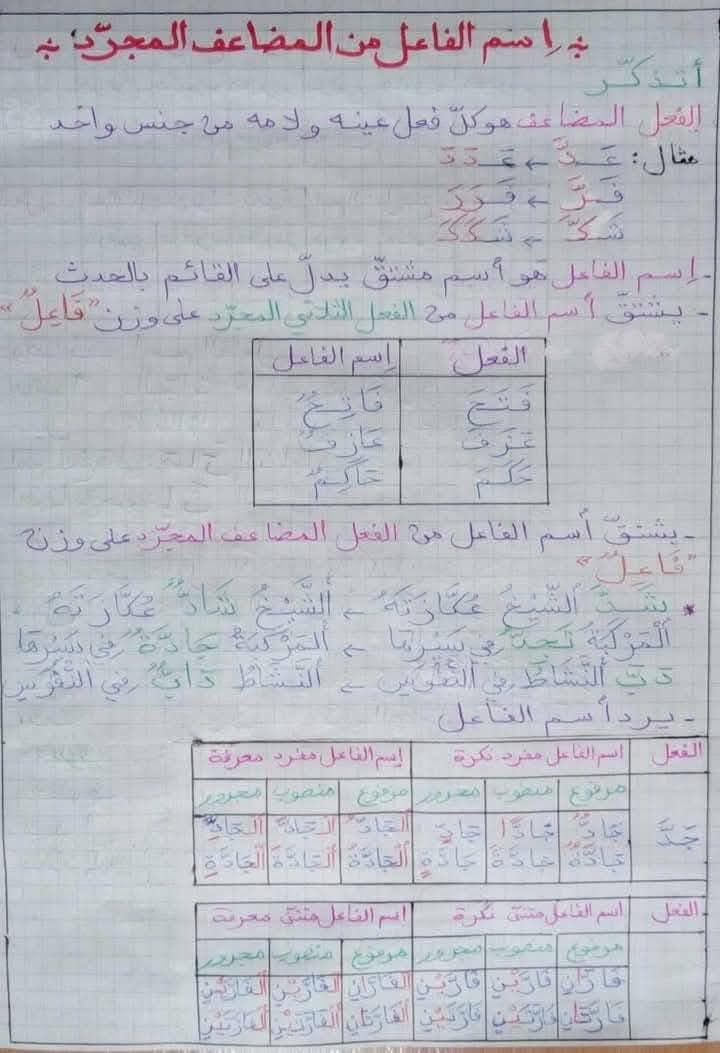 إسم الفاعل من المضاعف المجرّد:
أتذكّر
الفعل المضاعف هو كلّ فعل عينه ولامه من جنس واحد
مثال: عَدَّ ← عَدَدَ
فَرَّ ← فَرَرَ
شَكَّ ← شَكَكَ
- إسم الفاعل هو أسم مشتقّ يدلّ على القائم بالحدث
- يشتقّ أسم الفاعل من الفعل الثلاثي المجرّد على وزن "فَاعِلٌ"
الفعل إسم الفاعل
فَتَحَ فَاتِحٌ
عَزَفَ عَازِفٌ
حَكَمَ حَاكِمٌ
- يشتقّ أسم الفاعل من الفعل المضاعف المجرّد على وزن
"فَاعِلٌ"
* يَشُدُّ الشَّيْخُ عُكَّازَتَهُ ← ألشَّيْخُ شَادٌّ عُكَّازَتَهُ.
ألْمَرْكَبَةُ تَجِدُّ فِي سَيْرِهَا ← ألمَرْكَبَةُ جَادَّةٌ فِي سَيْرِهَا
دَبَّ ألنَّشَاطُ فِي ألنُّفُوسِ ← ألنَّشَاطُ دَابٌّ فِي النُّفُوسِ
- يرد أسم الفاعل
الفعل اسم الفاعل مفرد نكرة إسم الفاعل مفرد معرفة
مرفوع منصوب مجرور مرفوع منصوب مجرور
جَدَّ جَادٌّ جَادًّا جَادٍّ ألجَادُّ ألجَادَّ ألجَادِّ
جَادَّةٌ جَادَّةً جَادَّةٍ ألْجَادَّةُ ألْجَادَّةَ ألْجَادَّةِ
الفعل اسم الفاعل مثنّى نكرة إسم الفاعل مثنّى معرفة
مرفوع منصوب مجرور مرفوع منصوب مجرور
فَارَّانِ فَارَّيْنِ فَارَّيْنِ ألفَارَّانِ ألفَارَّيْنِ ألفَارَّيْنِ
فَارَّتَانِ فَارَّتَيْنِ فَارَّتَيْنِ ألفَارَّتَانِ ألفَارَّتَيْنِ ألفَارَّتَيْنِ